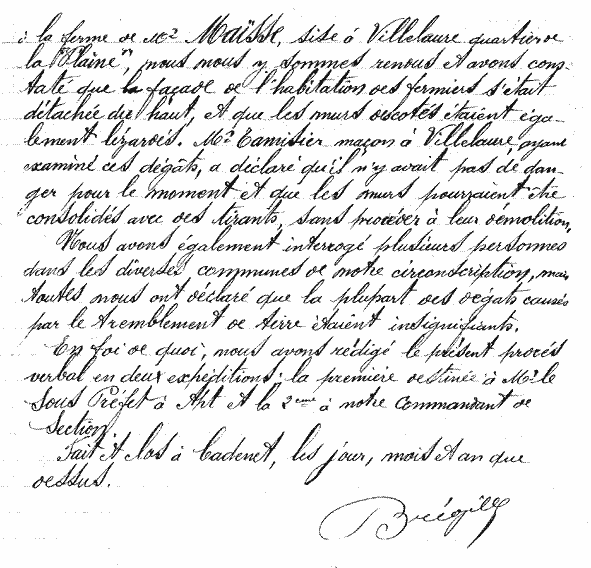 à la ferme de Mr Maïsse, sise à Villelaure quartier de
la "Plaine", nous nous y sommes rendus et avons cons-
taté que la façade de l'habitation des fermiers s'était
détachée du haut, et que les murs de cotés étaient éga-
lement lézardés. Mr Tamisier maçon à Villelaure, ayant
examiné ces dégâts, a déclaré qu'il n'y avait pas de dan-
ger pour le moment et que les murs pourraient être
consolidés avec des tirants, sans procéder à leur démolition.
Nous avons également interrogé plusieurs personnes
dans les diverses communes de notre circonscription, mais
toutes nous ont déclaré que la plupart des dégats causés
par le tremblement de terre étaient insignifiants.
En foi de quoi, nous avons rédigé le présent procès
verbal en deux expéditions; la première destinée à Mr le
Sous Préfet à Apt et la 2eme à notre Commandant de
Section.
Fait et clos à Cadenet, les jour, mois et an que
dessus.